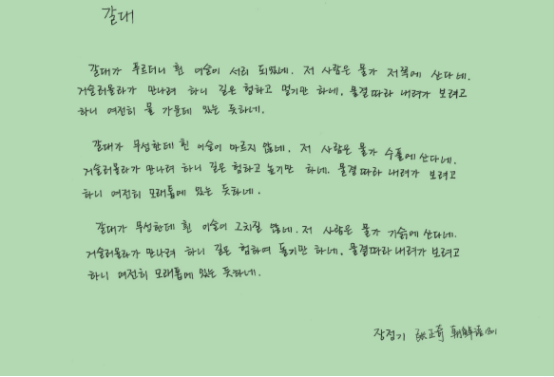 갈대
갈대가 푸르더니 흰 이슬이 서리 되었네. 저 사람은 물가 저쪽에 산다네.
거슬러올라가 만나려 하니 길은 험하고 멀기만 하네, 물결따라 내려가 보려고
하니 여전히 물 가운데 있는 듯하네.
갈대가 무성한데 흰 이슬이 마르지 않네. 저 사람은 물가 수풀에 산다네.
거슬러올라가 만나려 하니 길은 험하고 높기만 하네. 물결따라 내려가 보려고
하니 여전히 모래톱에 있는 듯하네.
갈대가 무성한데 흰 이슬이 그치질 않네. 저 사람은 물가 기슭에 산다네.
거슬러올라가 만나려 하니 길은 험하여 돌기만 하네, 물결따라 내려가 보려고
하니 여전히 모래톱에 있는 듯하네.
장정기 张正奇 朝鲜语